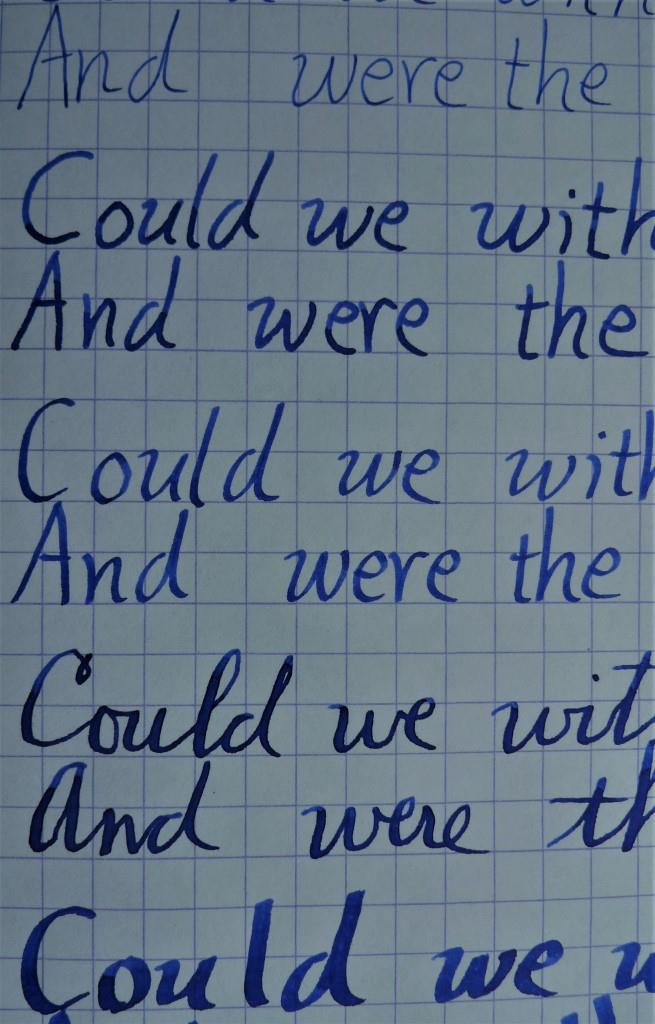 And were the
Could we with
And were the
Could we with
And were the
Could we wit
And were th
Could we